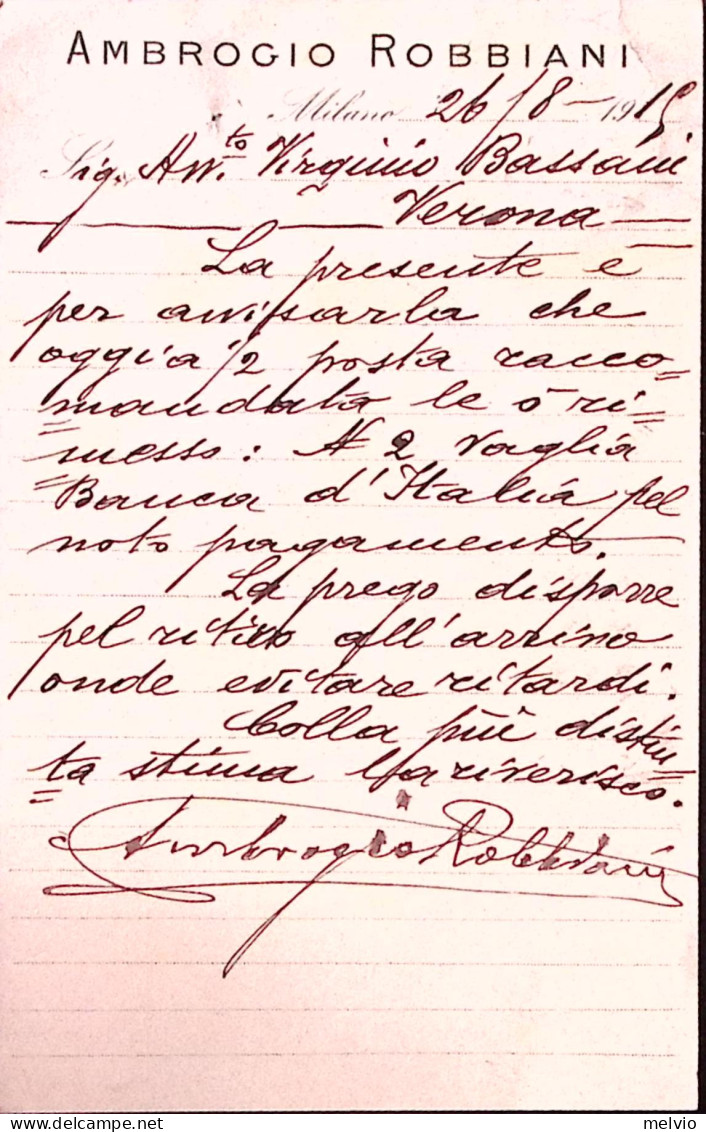 AMBROGIO ROBBIANI
Milano 26/8 - 1915
Sig. Avv.to Virginio Bassani
Verona
La presente è
per avvisarla che
oggi a 1/2 posta racco=
=mandata le ò ri=
=messo: N 2 vaglia
Banca d'Italia pel
noto pagamento.
La prego disporre
pel ritiro all'arrivo
onde evitare ritardi.
Colla più distin=
=ta stima La riverisco.
Ambrogio Robbiani
melvio